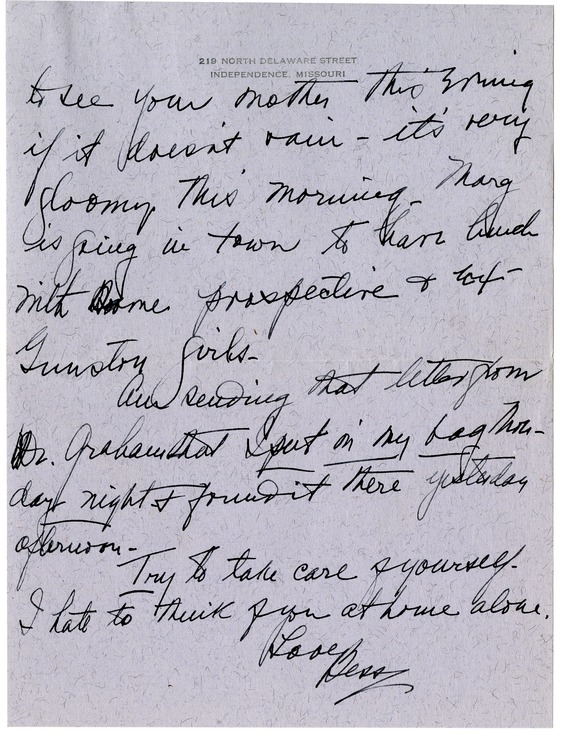 219 NORTH DELAWARE STREET
INDEPENDENCE, MISSOURI
to see your mother this evening
if it doesn't rain - it's very
gloomy this morning. Marg
is going in town to have lunch
with some prospective & ex-
Gunston girls -
Am sending that letter from
Dr. Graham that I put in my bag Mon-
day night & found it there yesterday
afternoon -
Try to take care of yourself -
I hate to think of you at home alone.
Love,
Bess